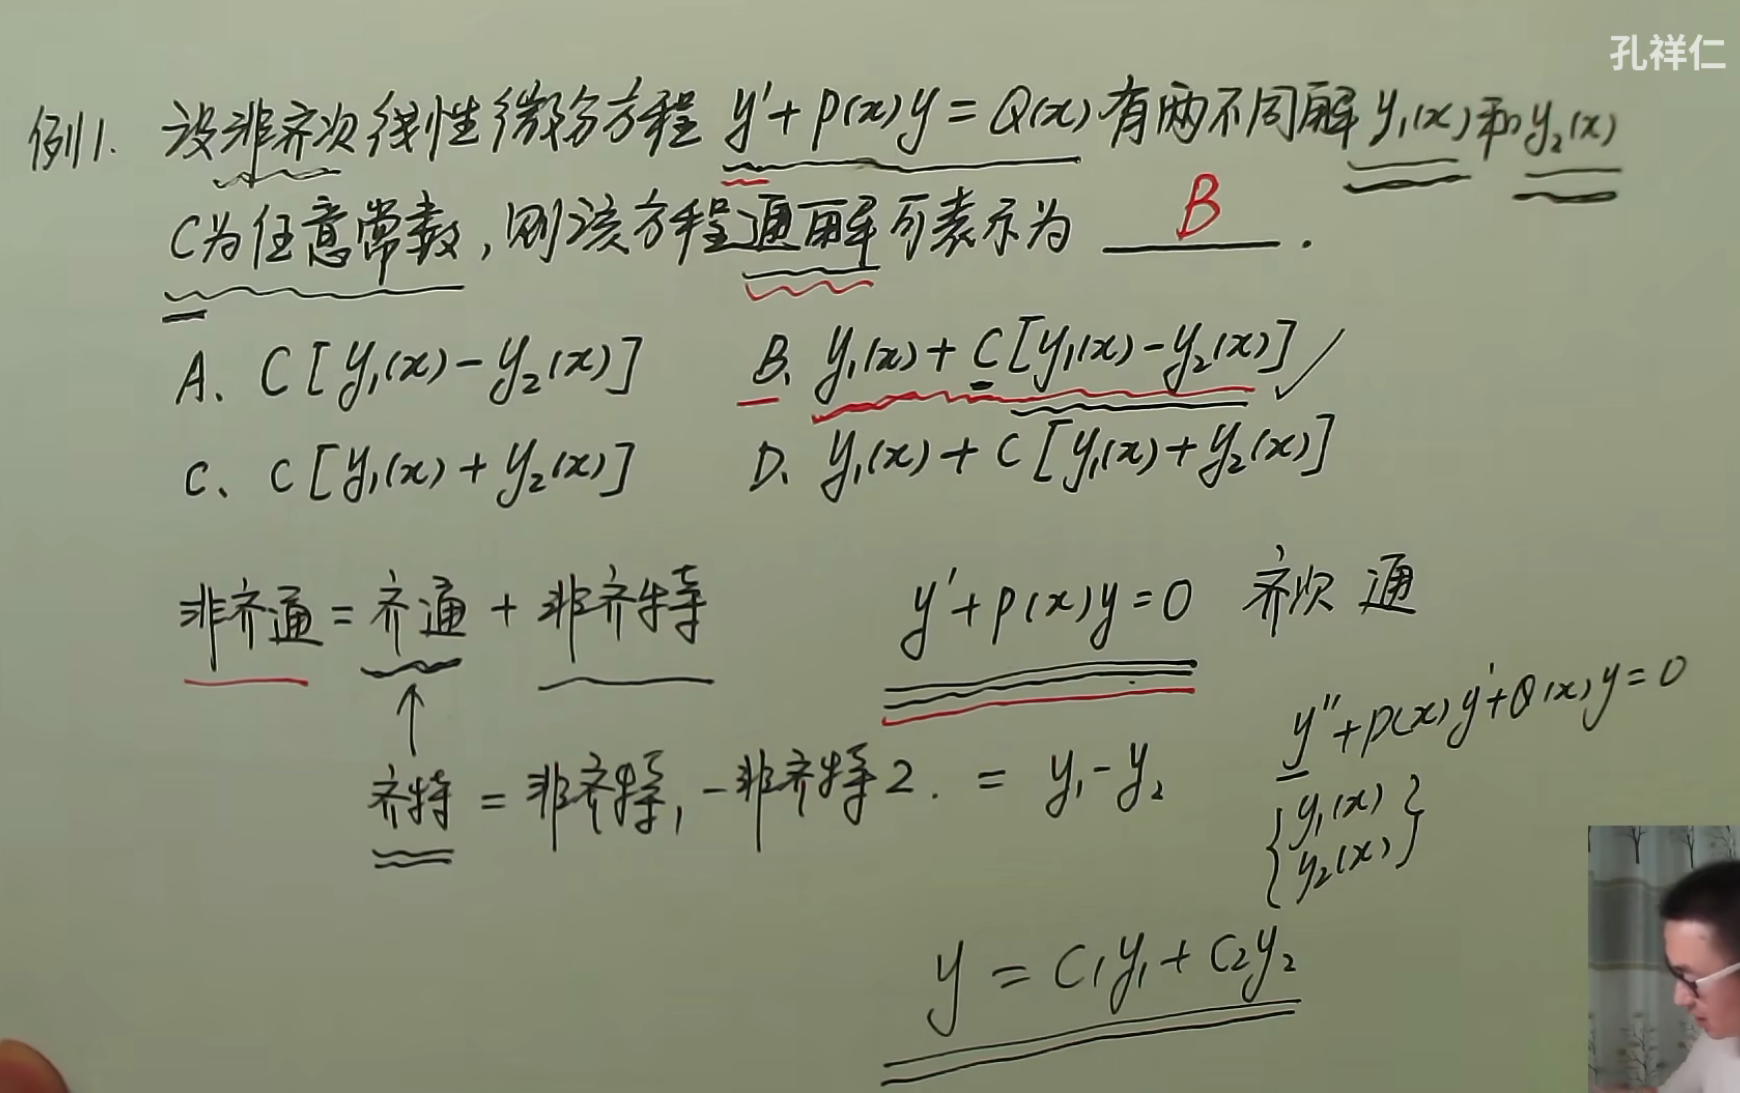 孔祥仁
例1. 设非齐次线性微分方程 y'+P(x)y=Q(x) 有两不同解 y₁(x) 和 y₂(x)
C为任意常数,则该方程通解可表示为 B .
A、C[y₁(x)-y₂(x)] B、y₁(x)+C[y₁(x)-y₂(x)] ✓
C、C[y₁(x)+y₂(x)] D、y₁(x)+C[y₁(x)+y₂(x)]
非齐通 = 齐通 + 非齐特 y'+P(x)y=0 齐次 通
↑
齐特 = 非齐特₁ - 非齐特2. = y₁-y₂
y''+P(x)y'+Q(x)y=0
{y₁(x)
y₂(x)}
y = C₁y₁+C₂y₂